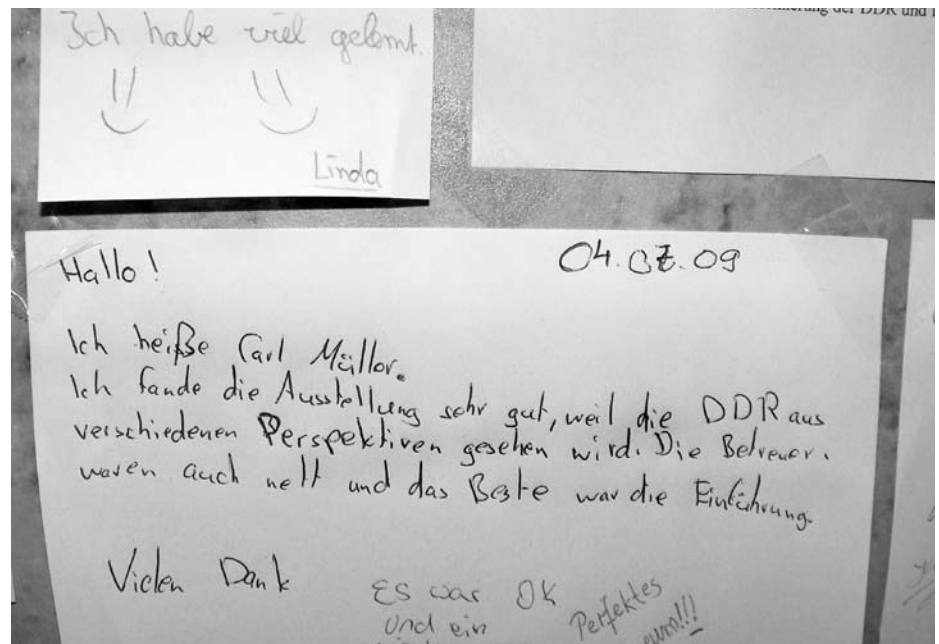 Ich habe viel gelernt.
Linda
der DDR und
Hallo!
04.07.09
Ich heiße Carl Müller.
Ich fande die Ausstellung sehr gut, weil die DDR aus
verschiedenen Perspektiven gesehen wird. Die Betreuer
waren auch nett und das Beste war die Einführung.
Vielen Dank
Es war OK
und ein
Perfektes